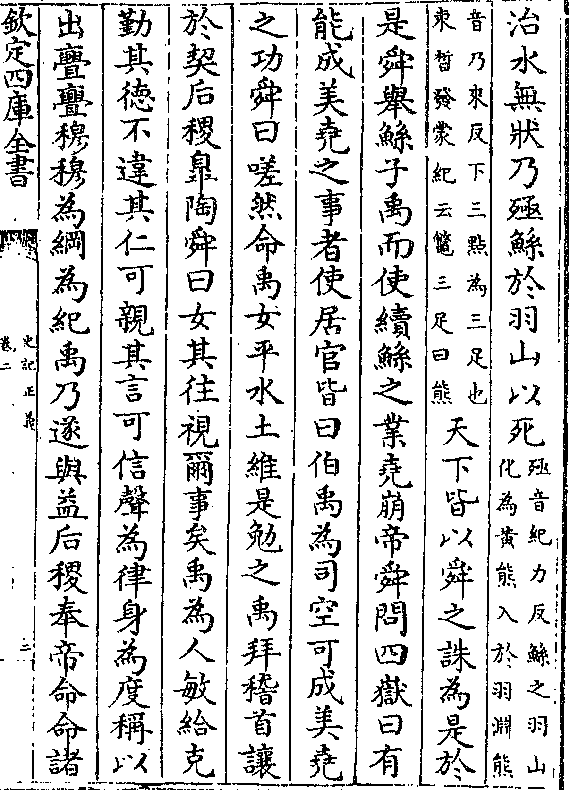 治水無狀乃殛鯀於羽山以死
殛音紀力反鯀之羽山
化為黃熊入於羽淵熊
音乃來反下三點為三足也
束晳發蒙紀云鼈三足曰熊
天下皆以舜之誅為是於
是舜舉鯀子禹而使續鯀之業堯崩帝舜問四嶽曰有
能成美堯之事者使居官皆曰伯禹為司空可成美堯
之功舜曰嗟然命禹女平水土維是勉之禹拜稽首讓
於契后稷臯陶舜曰女其往視爾事矣禹為人敏給克
勤其徳不違其仁可親其言可信聲為律身為度稱以
出亹亹穆穆為綱為紀禹乃遂與益后稷奉帝命命諸
欽定四庫全書
史記正義
卷二
三